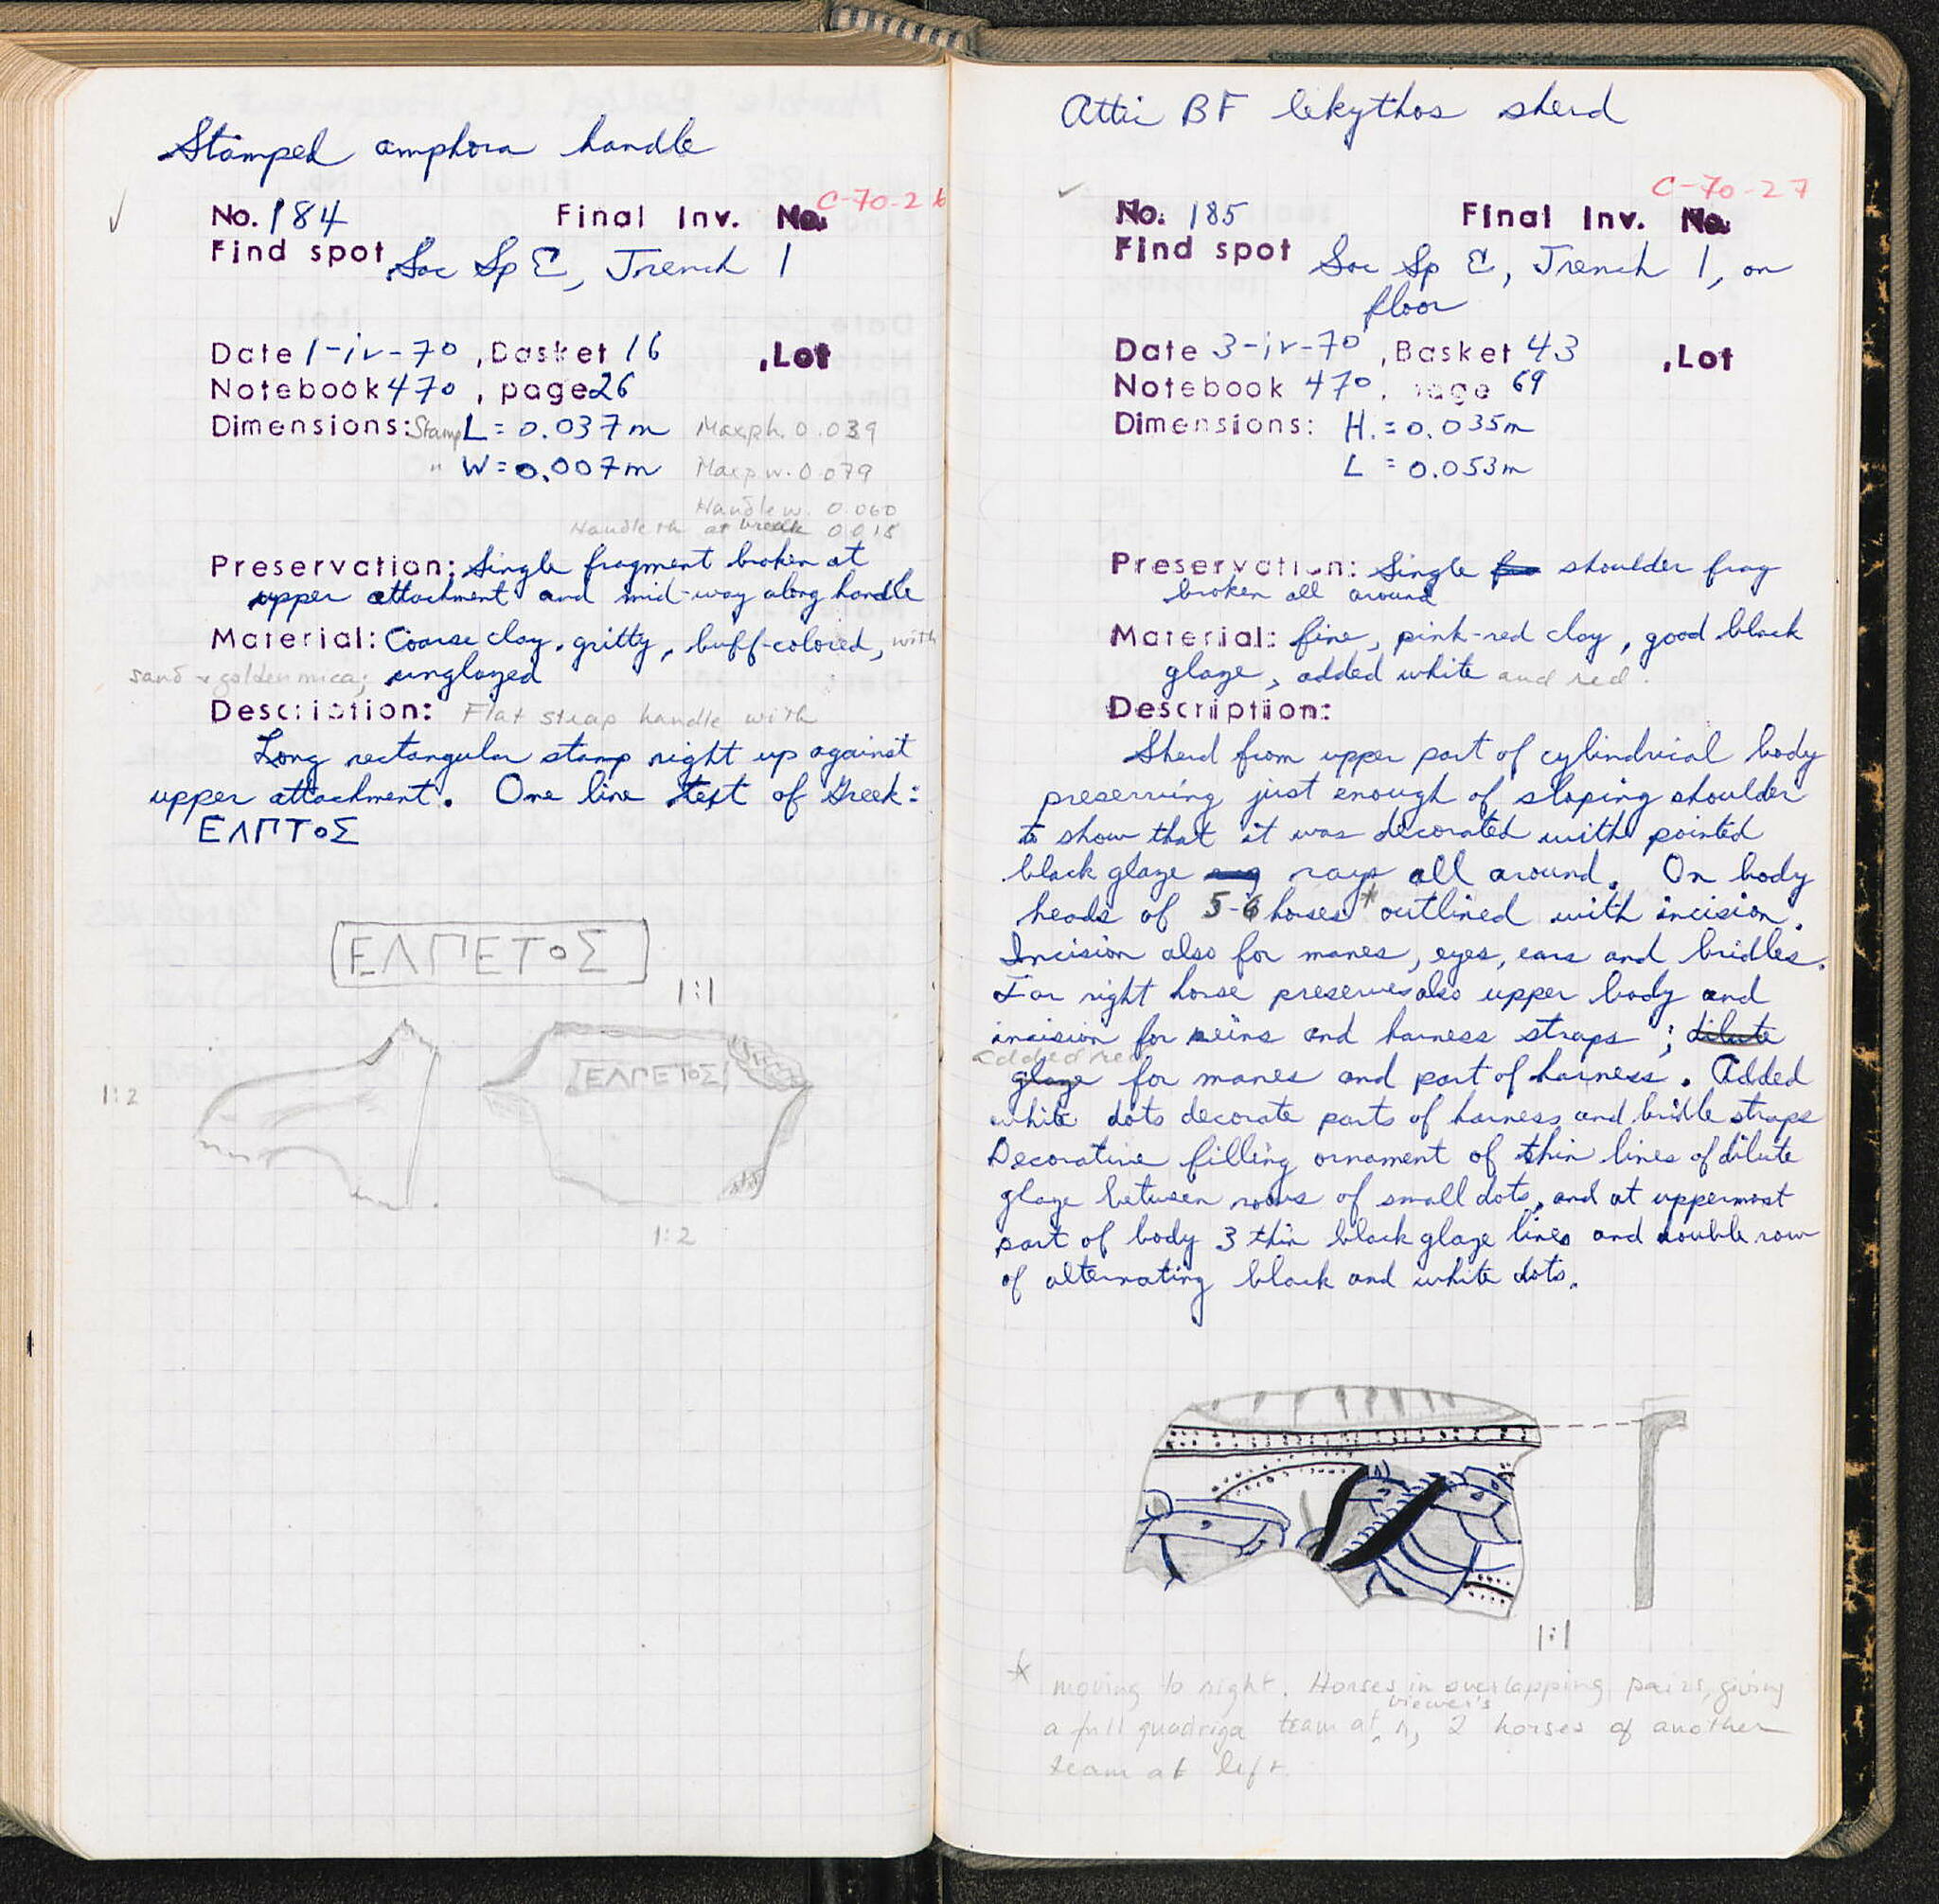 Stamped amphora handle
C-70-26
No. 184 Final Inv. No.
Find spot Soc Sp E, Trench 1
Date 1-iv-70, Basket 16 , Lot
Notebook 470, page 26
Dimensions: Stamp L = 0.037m Max p.h. 0.039
" W = 0.007m Max p w. 0.079
Handle w. 0.060
Handle th at break 0.018
Preservation: Single fragment broken at
upper attachment and mid-way along handle
Material: Coarse clay, gritty, buff-colored, with
sand + golden mica; unglazed
Description: Flat strap handle with
Long rectangular stamp right up against
upper attachment. One line text of Greek:
ΕΛΠΤοΣ
ΕΛΠΕΤοΣ
1:1
ΕΛΠΕΤοΣ
1:2
1:2
Attic BF lekythos sherd
C-70-27
No. 185 Final Inv. No.
Find spot Soc Sp E, Trench 1, on
floor
Date 3-iv-70, Basket 43 , Lot
Notebook 470, page 69
Dimensions: H. = 0.035m
L = 0.053m
Preservation: Single shoulder frag
broken all around
Material: fine, pink-red clay, good black
glaze, added white and red.
Description:
Sherd from upper part of cylindrical body
preserving just enough of sloping shoulder
to show that it was decorated with pointed
black glaze rays all around. On body
heads of 5-6 horses * outlined with incision.
Incision also for manes, eyes, ears and bridles.
Far right horse preserves also upper body and
incision for reins and harness straps; dilute
added red
glaze for manes and part of harness. Added
white dots decorate parts of harness and bridle straps
Decorative filling ornament of thin lines of dilute
glaze between rows of small dots, and at uppermost
part of body 3 thin black glaze lines and double row
of alternating black and white dots.
1:1
* moving to right. Horses in overlapping pairs, giving
viewer's
a full quadriga team at r, 2 horses of another
team at left.